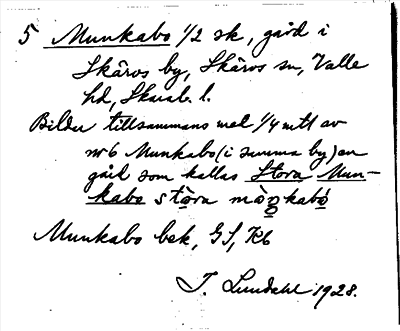 5 Munkabo 1/2 sk, gård i
Skärvs by, Skärvs sn, Valle
hd, Skarab. l.
Bildar tillsammans med 1/4 mtl av
nr 6 Munkabo (i samma by) en
gård som kallas Stora Mun-
kabo stòra mòŋkabo
Munkabo bek, GS, Kb
I. Lundahl 1928.